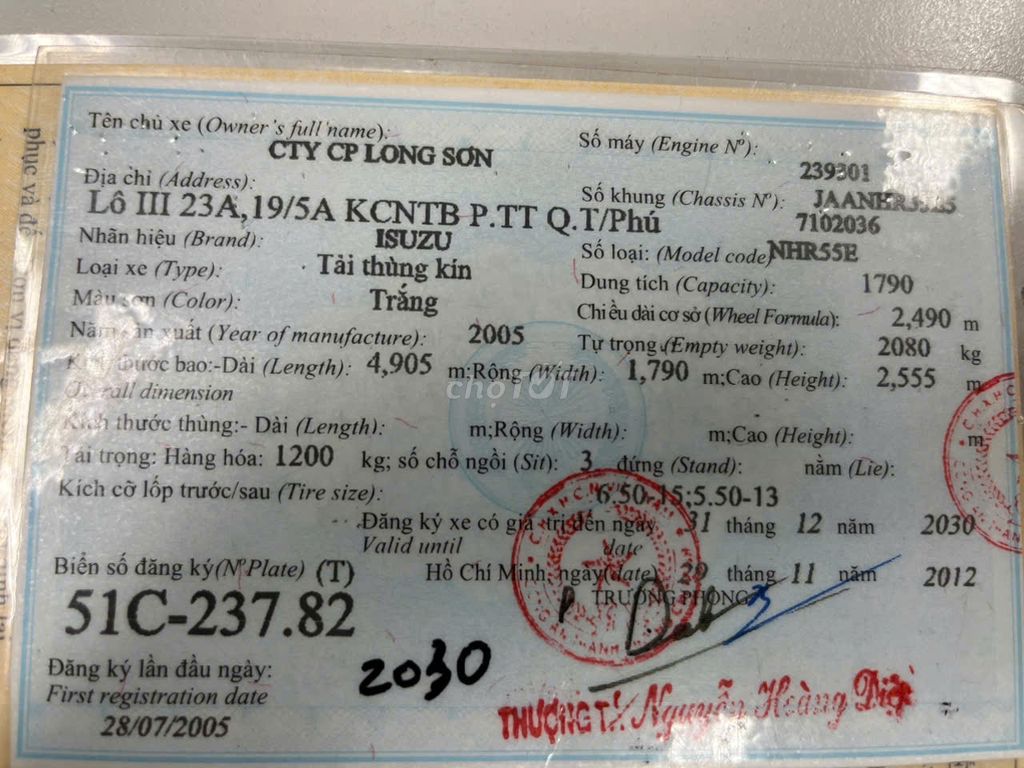 Tên chủ xe (Owner's full name):
CTY CP LONG SƠN
Địa chỉ (Address):
Lô III 23A,19/5A KCNTB P.TT Q.T/Phú
Nhãn hiệu (Brand): ISUZU
Loại xe (Type): Tải thùng kín
Màu sơn (Color): Trắng
Năm sản xuất (Year of manufacture): 2005
Số máy (Engine Nº):
239301
Số khung (Chassis Nº):
7102036
Số loại: (Model code) NHR55E
Dung tích (Capacity): 1790
Chiều dài cơ sở (Wheel Formula): 2,490 m
Tự trọng (Empty weight): 2080 kg
Kích thước bao:-Dài (Length): 4,905 m;Rộng (Width): 1,790 m;Cao (Height): 2,555 m
Overall dimension
Kích thước thùng:- Dài (Length): m;Rộng (Width): m;Cao (Height): m
Tải trọng: Hàng hóa: 1200 kg; số chỗ ngồi (Sit): 3 đứng (Stand): nằm (Lie):
Kích cỡ lốp trước/sau (Tire size): 6.50-15;5.50-13
Đăng ký xe có giá trị đến ngày 31 tháng 12 năm 2030
Valid until date
Biển số đăng ký(Nº Plate) (T)
51C-237.82
Hồ Chí Minh, ngày(date) 29 tháng 11 năm 2012
P. TRƯỞNG PHÒNG
Đăng ký lần đầu ngày:
First registration date
28/07/2005
2030
THƯỢNG TÁ Nguyễn Hoàng Diệp
phục và để
chợTỐT